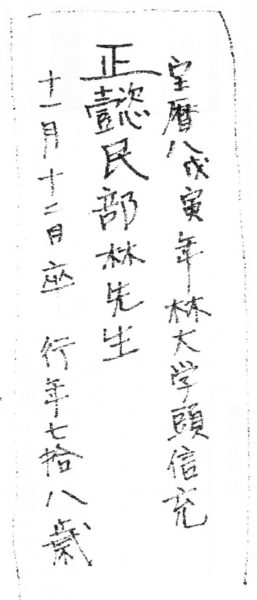 宝暦八戊寅年林大学頭信充
正懿民部林先生
十一月十二日卒 行年七拾八歳